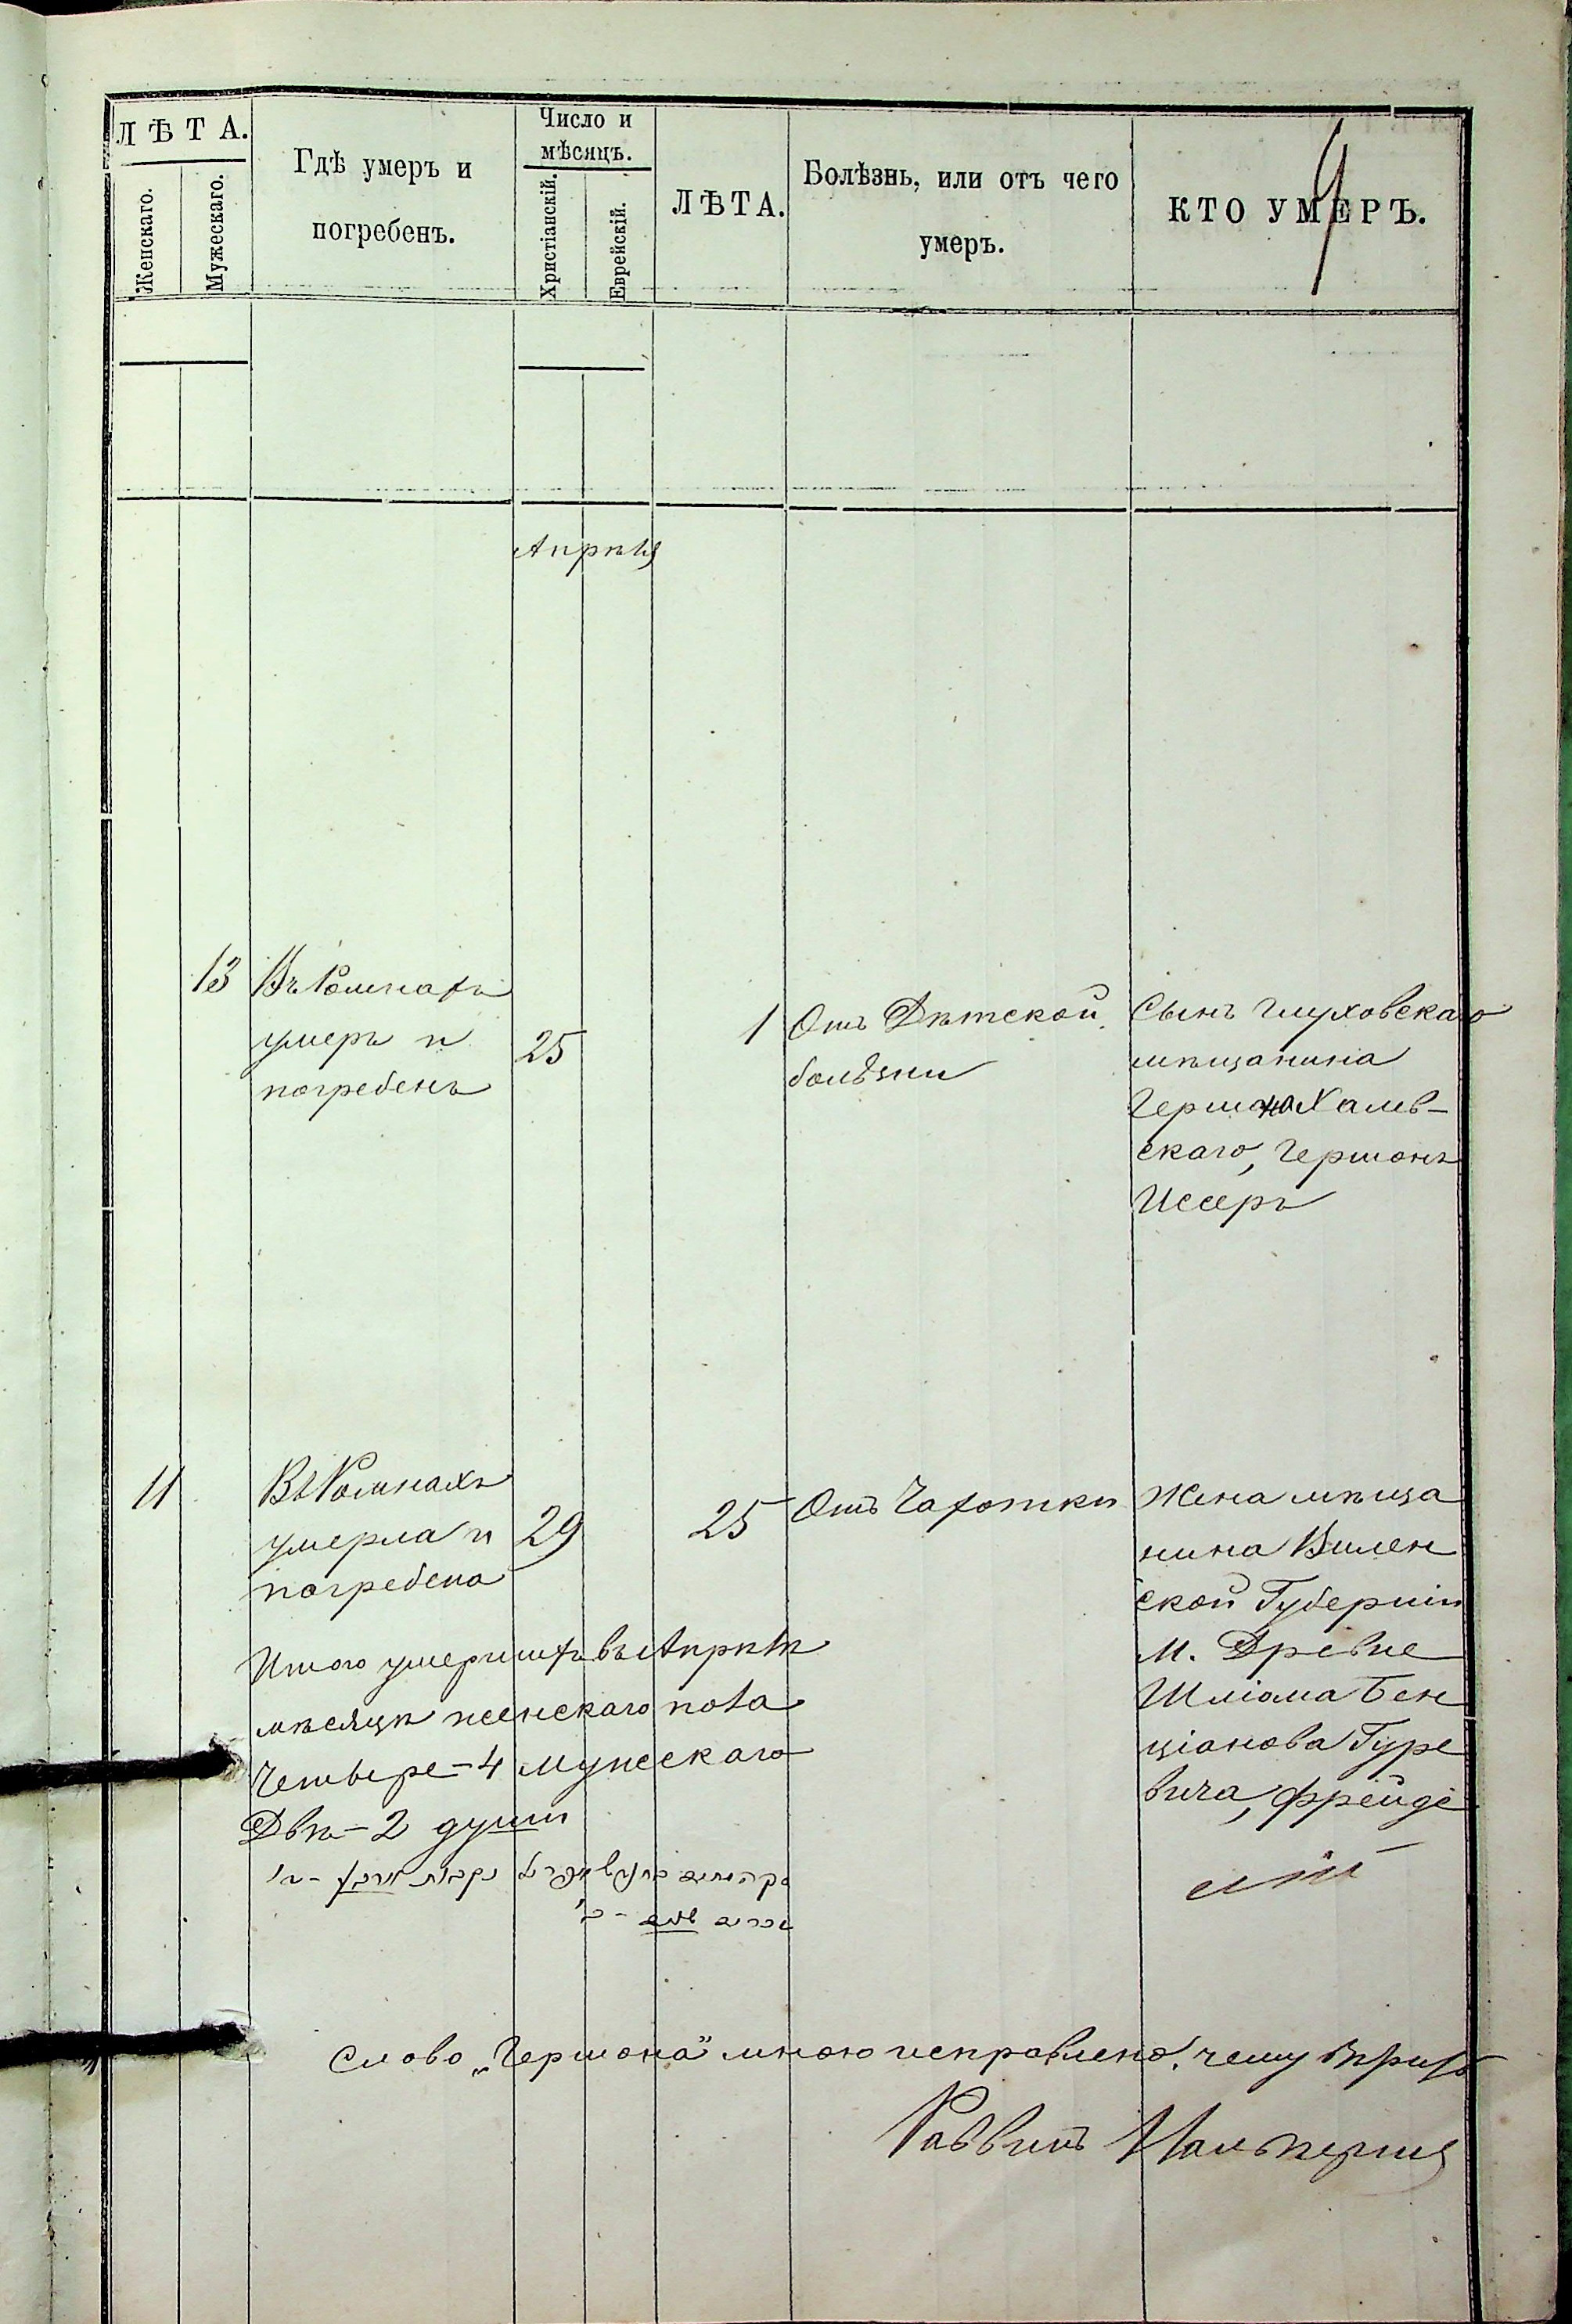 9
ЛѢТА.
Женскаго.
Мужескаго.
Гдѣ умеръ и
погребенъ.
Число и
мѣсяцъ.
Христіанскій.
Еврейскій.
ЛѢТА.
Болѣзнь, или отъ чего
умеръ.
КТО УМЕРЪ.
Апрѣля
13
Въ Ромнахъ
умеръ и
погребенъ
25
1
Отъ Дѣтской
болѣзни
Сынъ Глуховскаго
мѣщанина
Гершона Халев-
скаго, Гершонъ
Исеръ
11
Въ Ромнахъ
умерла и
погребена
29
25
Отъ Чахотки
Жена мѣща
нина Вилен
ской Губерніи
м.
Шліома Бен
ціанова Гуре
вича, Фрейде
Итого умершихъ въ Апрѣлѣ
мѣсяцѣ женскаго пола
Четыре - 4 мужескаго
Двѣ - 2 души
Слово „Гершона" мною исправлено, чему
Раввинъ Гальпернъ